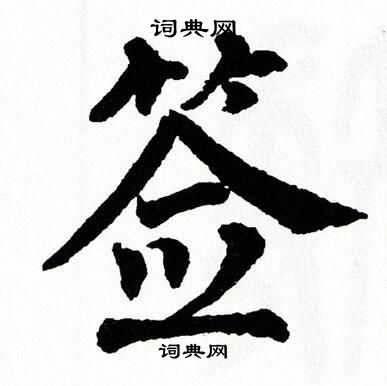 词典网
签
词典网